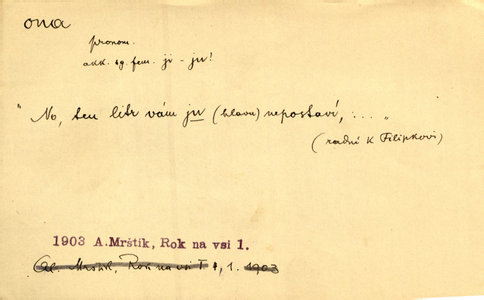 ona
pronom.
akk. sg. fem. ji - ju!
"No, ten litr vám ju (hlavu) nepostaví, ... "
(radní k Filipkovi)
1903 A.Mrštík, Rok na vsi 1.
Al. Mrštík, Rok na vsi I , 1. 1903